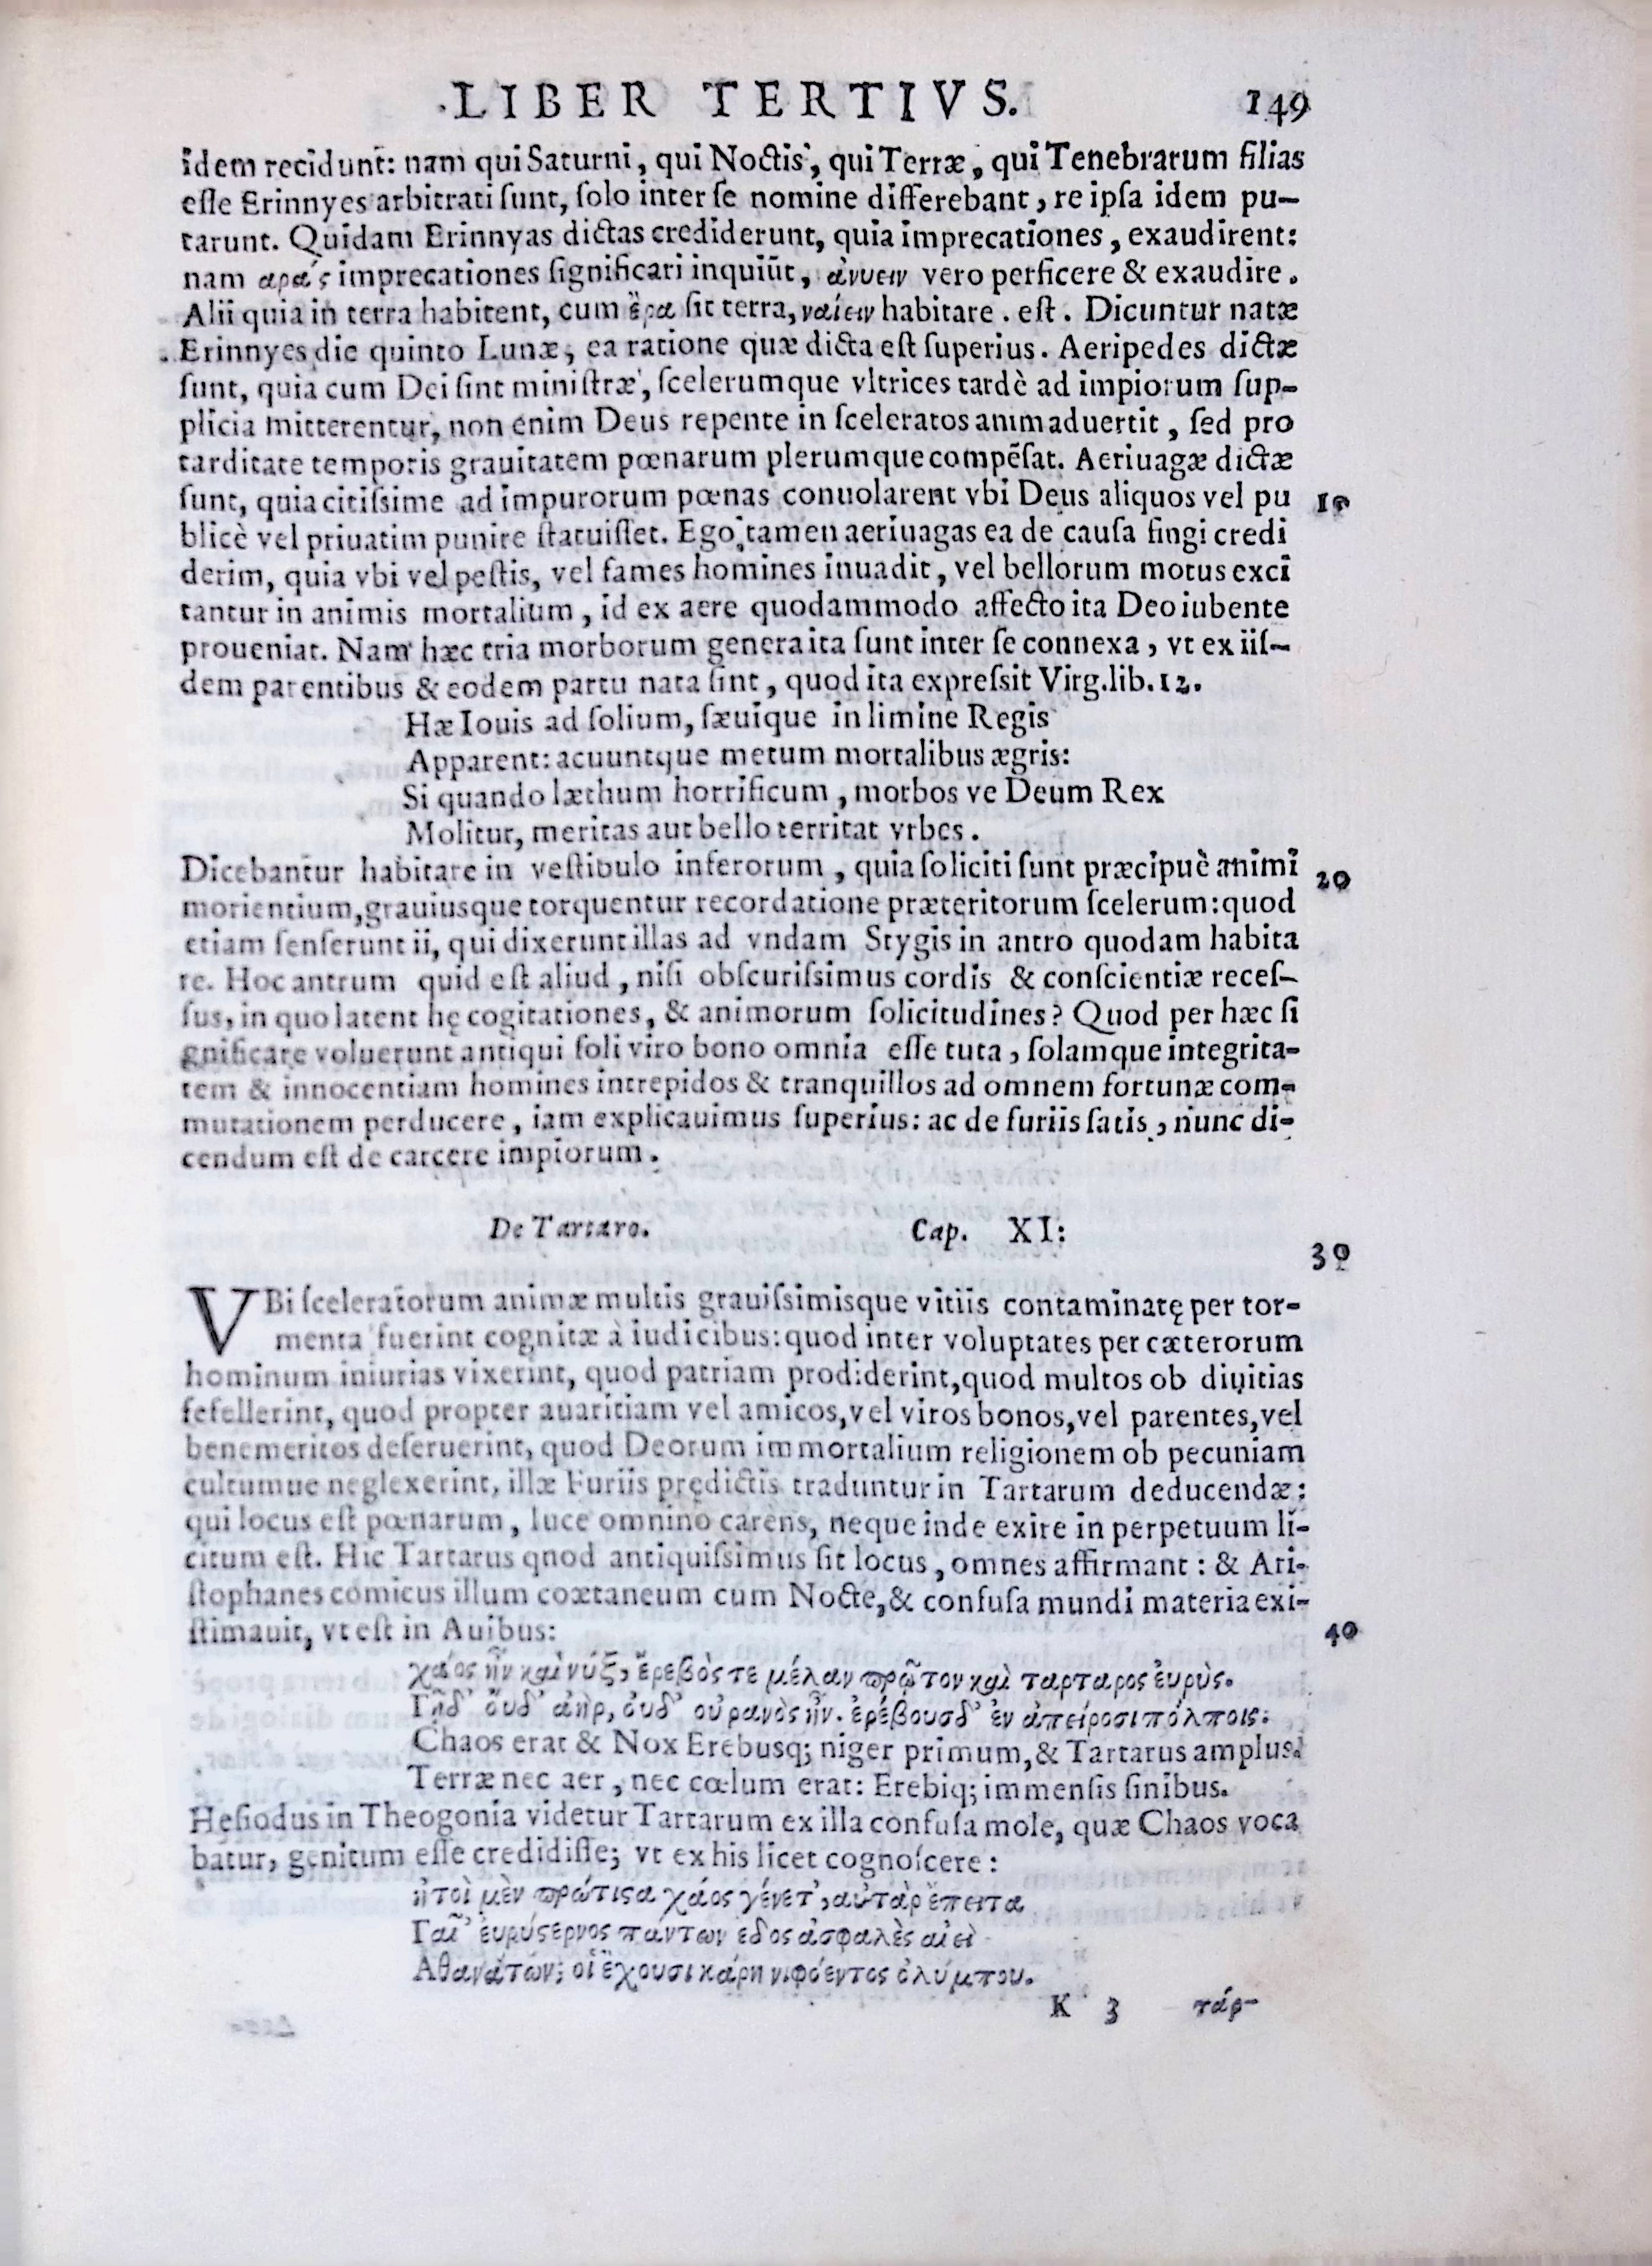 LIBER TERTIVS. 149
idem recidunt: nam qui Saturni, qui Noctis, qui Terræ, qui Tenebrarum filias
eſſe Erinnyes arbitrati ſunt, ſolo inter ſe nomine differebant, re ipſa idem pu-
tarunt. Quidam Erinnyas dictas crediderunt, quia imprecationes, exaudirent:
nam αράς imprecationes ſignificari inquiūt, ἀνυειν vero perficere & exaudire.
Alii quia in terra habitent, cum ἔρα ſit terra, ναίειν habitare. eſt. Dicuntur natæ
Erinnyes die quinto Lunæ, ea ratione quæ dicta eſt ſuperius. Aeripedes dictæ
ſunt, quia cum Dei ſint miniſtræ, ſcelerumque vltrices tardè ad impiorum ſup-
plicia mitterentur, non enim Deus repente in ſceleratos animaduertit, ſed pro
tarditate temporis grauitatem pœnarum plerumque compēſat. Aeriuagæ dictæ
ſunt, quia citiſsime ad impurorum pœnas conuolarent vbi Deus aliquos vel pu 10
blicè vel priuatim punire ſtatuiſſet. Ego tamen aeriuagas ea de cauſa fingi credi
derim, quia vbi vel peſtis, vel fames homines inuadit, vel bellorum motus exci
tantur in animis mortalium, id ex aere quodammodo affecto ita Deo iubente
proueniat. Nam hæc tria morborum genera ita ſunt inter ſe connexa, vt ex iiſ-
dem parentibus & eodem partu nata ſint, quod ita expreſsit Virg. lib. 12.
Hæ Iouis ad ſolium, ſæuique in limine Regis
Apparent: acuuntque metum mortalibus ægris:
Si quando læthum horrificum, morbos ve Deum Rex
Molitur, meritas aut bello territat vrbes.
Dicebantur habitare in veſtibulo inferorum, quia ſoliciti ſunt præcipuè animi 20
morientium, grauiusque torquentur recordatione præteritorum ſcelerum: quod
etiam ſenſerunt ii, qui dixerunt illas ad vndam Stygis in antro quodam habita
re. Hoc antrum quid eſt aliud, niſi obſcuriſsimus cordis & conſcientiæ receſ-
ſus, in quo latent hę cogitationes, & animorum ſolicitudines? Quod per hæc ſi
gnificare voluerunt antiqui ſoli viro bono omnia eſſe tuta, ſolamque integrita-
tem & innocentiam homines intrepidos & tranquillos ad omnem fortunæ com-
mutationem perducere, iam explicauimus ſuperius: ac de furiis ſatis, nunc di-
cendum eſt de carcere impiorum.
De Tartaro. Cap. XI:
30
VBi ſceleratorum animæ multis grauiſsimisque vitiis contaminatę per tor-
menta fuerint cognitæ à iudicibus: quod inter voluptates per cæterorum
hominum iniurias vixerint, quod patriam prodiderint, quod multos ob diuitias
fefellerint, quod propter auaritiam vel amicos, vel viros bonos, vel parentes, vel
benemeritos deſeruerint, quod Deorum immortalium religionem ob pecuniam
cultumue neglexerint, illæ Furiis prędictis traduntur in Tartarum deducendæ:
qui locus eſt pœnarum, luce omnino carens, neque inde exire in perpetuum li-
citum eſt. Hic Tartarus qnod antiquiſsimus ſit locus, omnes affirmant: & Ari-
ſtophanes comicus illum coætaneum cum Nocte, & confuſa mundi materia exi-
ſtimauit, vt eſt in Auibus: 40
χάος ἦν καὶ νύξ, ἔρεβός τε μέλαν πρῶτον καὶ ταρταρος ἐυρὺς.
Γῆδ’ ὄυδ’ ἀὴρ, ὀυδ’ οὐρανὸς ἦν. ἐρέβουσδ’ ἐν ἀπείροσι πόλποις:
Chaos erat & Nox Erebusq; niger primum, & Tartarus amplus:
Terræ nec aer, nec cœlum erat: Erebiq; immenſis ſinibus.
Heſiodus in Theogonia videtur Tartarum ex illa confuſa mole, quæ Chaos voca
batur, genitum eſſe credidiſſe; vt ex his licet cognoſcere:
ἤτοὶ μὲν πρώτιϛα χάος γένετ’, αὐτὰρ ἔπειτα
Γαῖ’ ἐυρύϛερνος πάντων ἑδος ἀσφαλὲς αἰεὶ
Αθανάτων; οἳ ἔχουσι κάρη νιφόεντος ὀλύμπου.
K 3 τάρ-